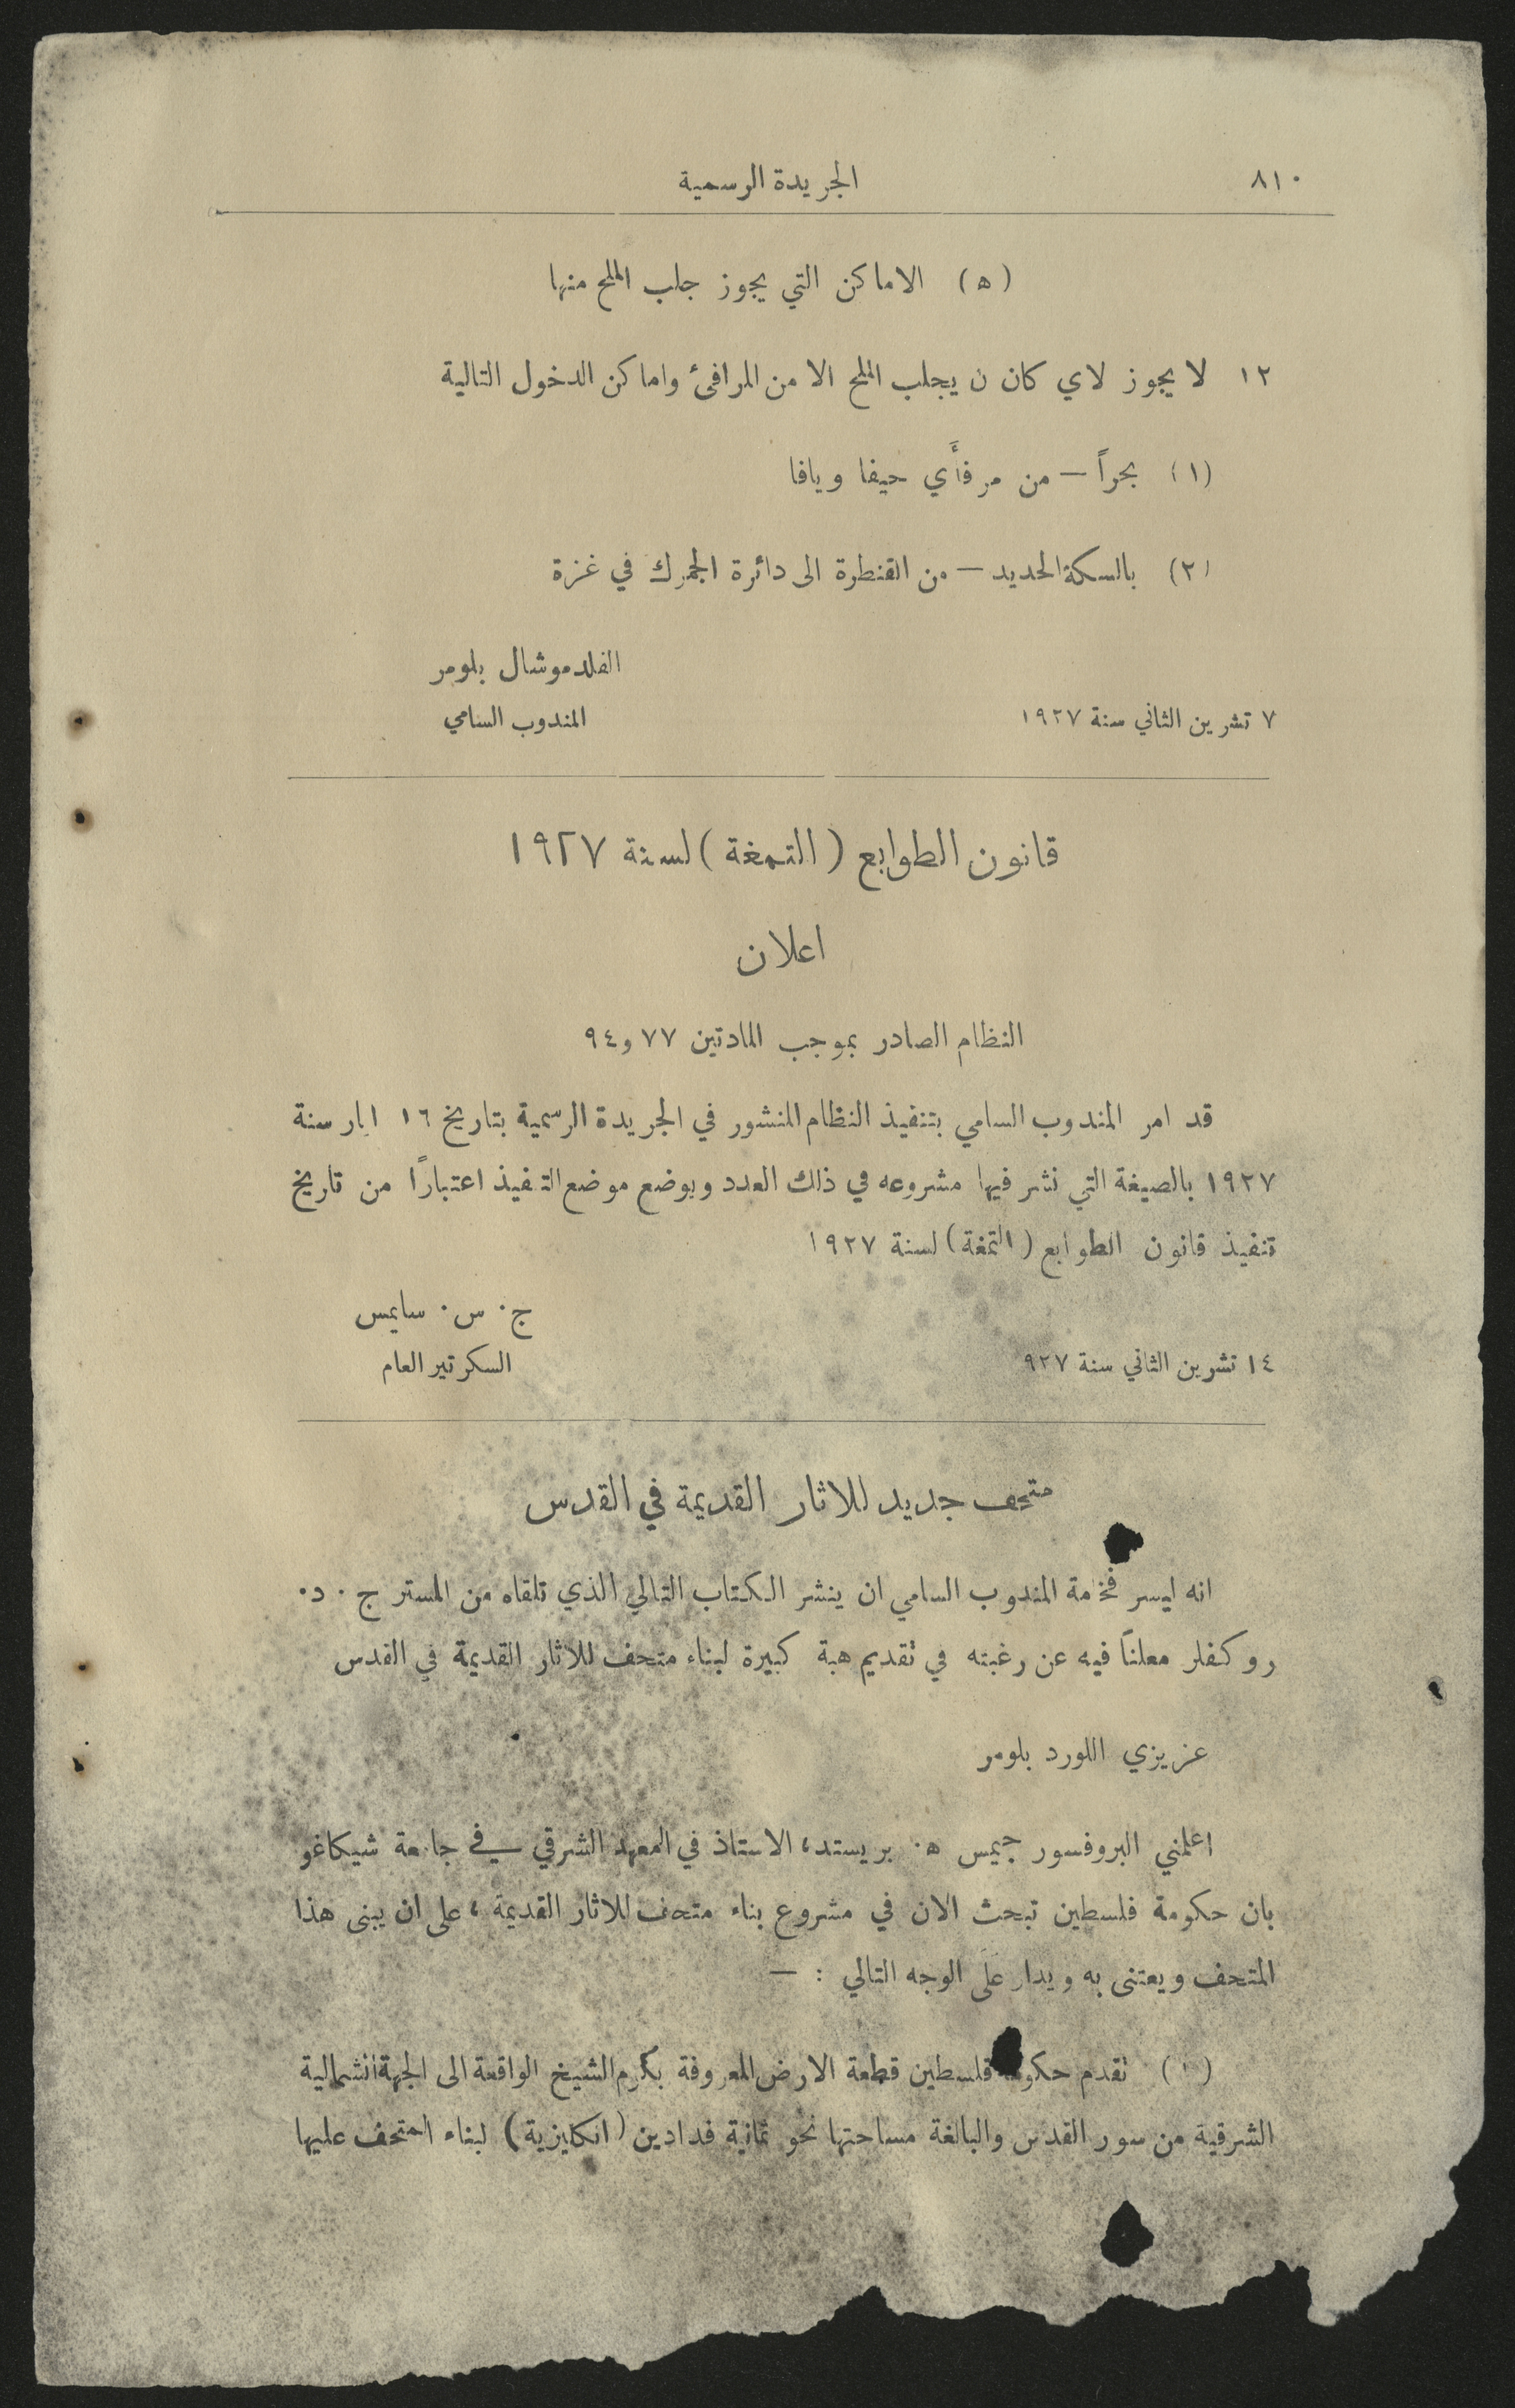 ٨١٠
الجريدة الرسمية
(ه) الاماكن التي يجوز جلب الملح منها
١٢ لا يجوز لاي كان ن يجلب الملح الا من المرافئ واماكن الدخول التالية
(١) بحراً — من مرفأَي حيفا ويافا
(٢) بالسكة الحديد — من القنطرة الى دائرة الجمرك في غزة
الفلد موشال بلومر
المندوب السامي
٧ تشرين الثاني سنة ١٩٢٧
قانون الطوابع (التمغة) لسنة ١٩٢٧
اعلان
النظام الصادر بموجب المادتين ٧٧ و ٩٤
قد امر المندوب السامي بتنفيذ النظام المنشور في الجريدة الرسمية بتاريخ ١٦ ايار سنة
١٩٢٧ بالصيغة التي نشر فيها مشروعه في ذلك العدد وبوضع موضع التنفيذ اعتبارًا من تاريخ
تنفيذ قانون الطوابع (التمغة) لسنة ١٩٢٧
ج٠ س٠ سايمس
السكرتير العام
١٤ تشرين الثاني سنة ٩٢٧
متحف جديد للاثار القديمة في القدس
انه ليسر فخامة المندوب السامي ان ينشر الكتاب التالي الذي تلقاه من المستر ج ٠ د٠
روكفلر معلناً فيه عن رغبته في تقديم هبة كبيرة لبناء متحف للاثار القديمة في القدس
عزيزي اللورد بلومر
اعلمني البروفسور جيمس ه٠ بريستد، الاستاذ في المعهد الشرقي في جامعة شيكاغو
بان حكومة فلسطين تبحث الان في مشروع بناء متحف للاثار القديمة، على ان يبنى هذا
المتحف ويعتنى به ويدار علَى الوجه التالي : —
(١) تقدم حكومة فلسطين قطعة الارض المعروفة بكرم الشيخ الواقعة الى الجهة الشمالية
الشرقية من سور القدس والبالغة مساحتها نحو ثمانية فدادين (انكليزية) لبناء المتحف عليها